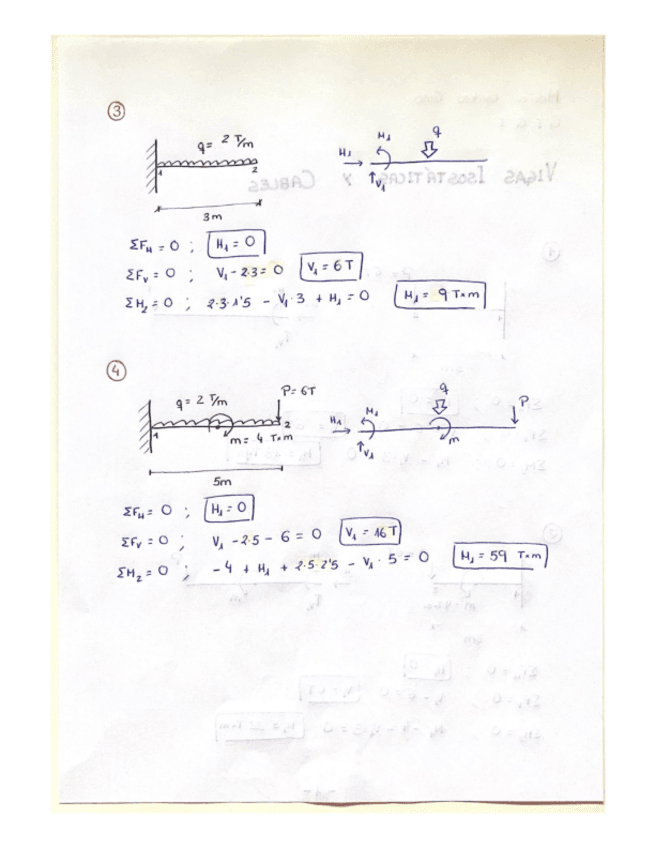 ③
q = 2 T/m
1 2
3m
H₁ M₁ V₁ q
ΣF_H = 0 ; H₁ = 0
ΣF_V = 0 ; V₁ - 2·3 = 0 V₁ = 6 T
ΣM₂ = 0 ; 2·3·1'5 - V₁·3 + M₁ = 0 M₁ = 9 T×m
④
q = 2 T/m P = 6T
1 2
m = 4 T×m
5m
H₁ M₁ V₁ q m P
ΣF_H = 0 ; H₁ = 0
ΣF_V = 0 ; V₁ - 2·5 - 6 = 0 V₁ = 16 T
ΣM₂ = 0 ; - 4 + M₁ + 2·5·2'5 - V₁ · 5 = 0 M₁ = 59 T×m
VIGAS ISOSTÁTICAS Y CABLES